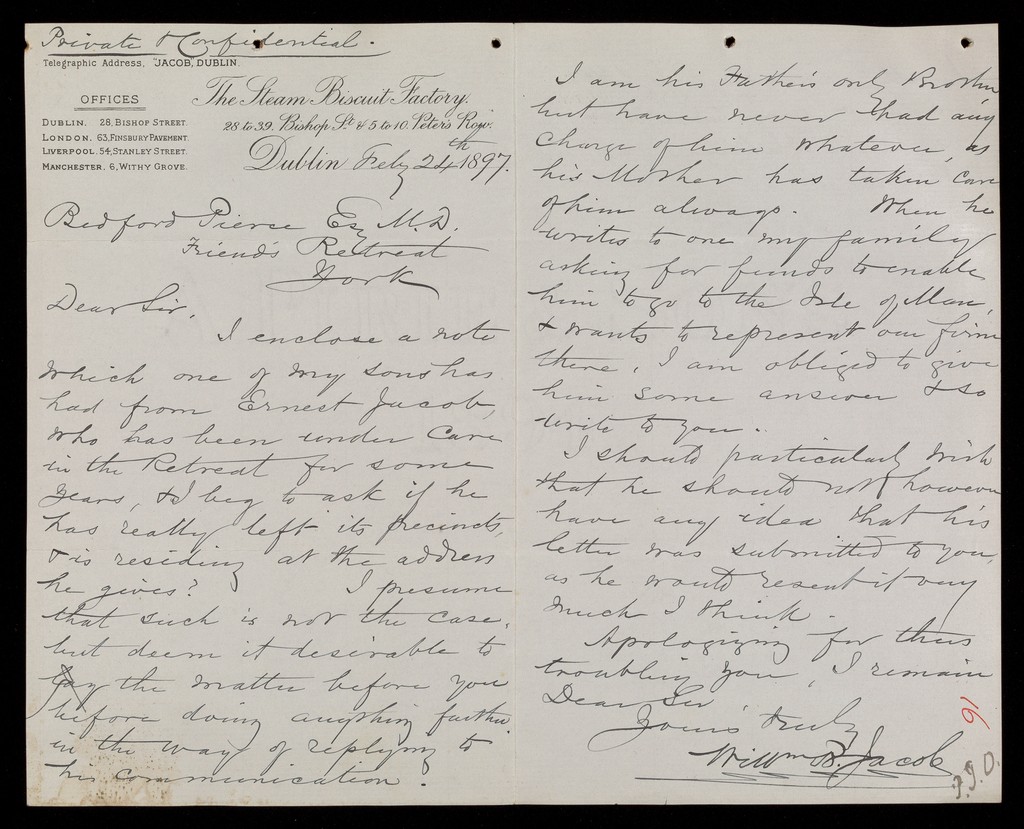 Private & Confidential.
Telegraphic Address, "JACOB," DUBLIN.
OFFICES
DUBLIN. 28, BISHOP STREET.
LONDON. 63, FINSBURY PAVEMENT.
LIVERPOOL. 54, STANLEY STREET.
MANCHESTER. 6, WITHY GROVE.
The Steam Biscuit Factory.
28 to 39. Bishop St. & 5 to 10. Peter's Row.
Dublin Feby 24th 1897.
Bedford Pierce Esq M.D.
Friends Retreat
York
Dear Sir,
I enclose a note
which one of my sons has
had from Ernest Jacob,
who has been under care
in the Retreat for some
years, & I beg to ask if he
has really left its precincts,
& is residing at the address
he gives? I presume
that such is not the case,
but deem it desirable to
lay the matter before you
before doing anything further
in the way of replying to
his communication.
I am his Father's only Brother,
but have never had any
charge of him whatever, as
his Mother has taken care
of him always. When he
writes to one my family
asking for funds to enable
him to go to the Isle of Man,
& wants to represent our firm
there, I am obliged to give
him some answer & so
write to you.
I should particularly wish
that he should not however
have any idea that his
letter was submitted to you,
as he would resent it very
much I think.
Apologizing for thus
troubling you, I remain
Dear Sir
Yours truly
Willm B. Jacob
91